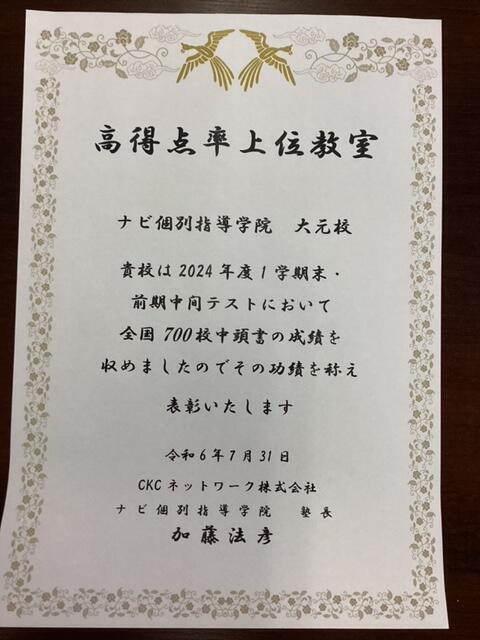 高得点率上位教室
ナビ個別指導学院　大元校
貴校は2024年度1学期末・
前期中間テストにおいて
全国700校中頭書の成績を
収めましたのでその功績を称え
表彰いたします
令和6年7月31日
CKCネットワーク株式会社
ナビ個別指導学院　塾長
加藤法彦